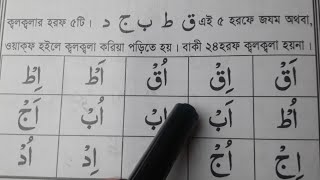 ক্বলক্বলার হরফ ৫টি। ق ط ب ج د এই ৫ হরফে জযম অথবা,
ওয়াক্ফ হইলে ক্বলক্বলা করিয়া পড়িতে হয়। বাকী ২৪হরফ ক্বলক্বলা হয়না।
اَقْ اِقْ اُقْ اَطْ اِطْ
اُطْ اَبْ اِبْ اُبْ اَجْ
اِجْ اُجْ اِدْ اُدْ